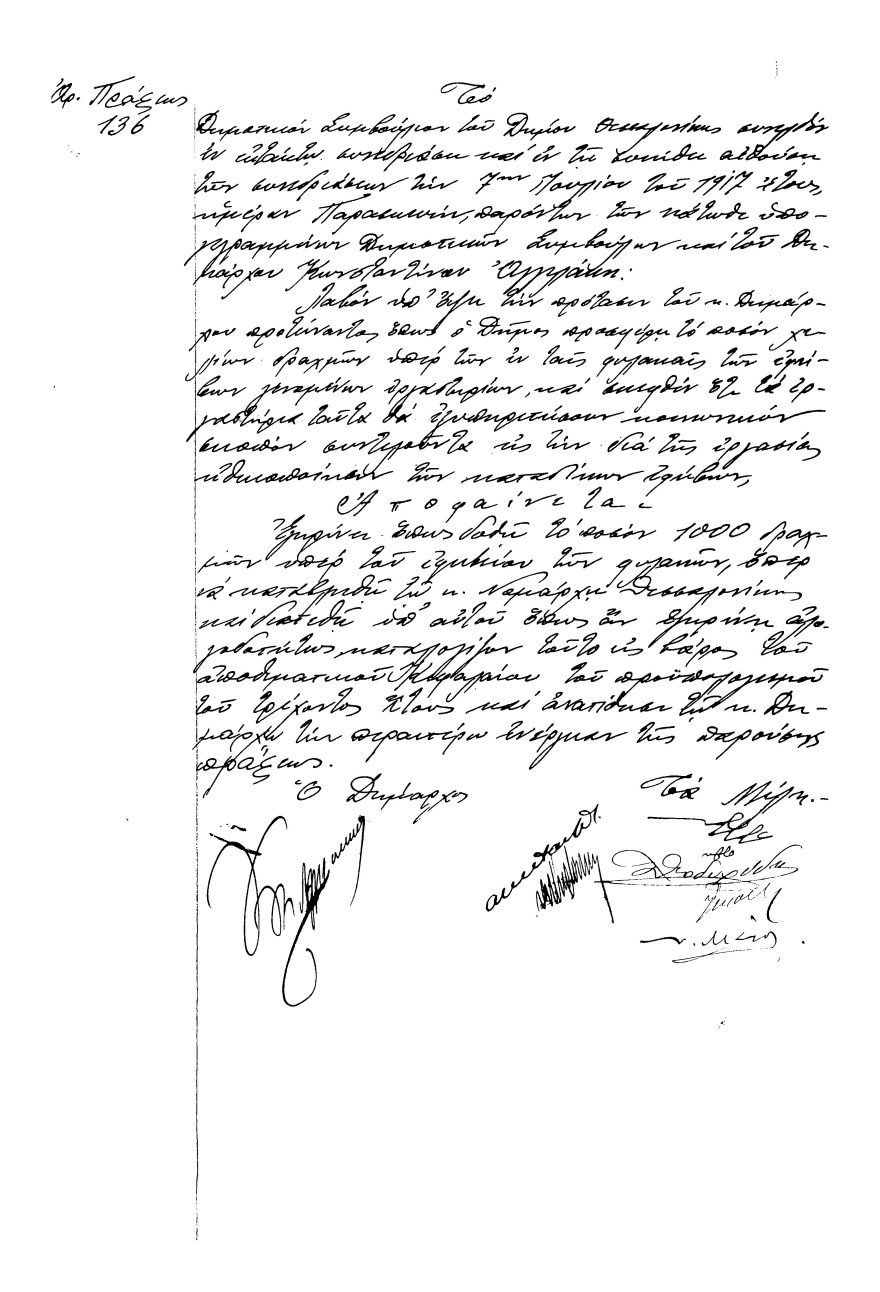 Ἀρ. Πράξεως
136
Τό
Δημοτικόν Συμβούλιον τοῦ Δήμου Θεσσαλονίκης συνελθόν
ἐν ἐκτάκτῳ συνεδριάσει καί ἐν τῇ συνήθει αἰθούσῃ
τῶν συνεδριάσεων τήν 7ην Ἰουλίου τοῦ 1917 ἔτους,
ἡμέραν Παρασκευήν, παρόντων τῶν κάτωθι ὑπο-
γεγραμμένων Δημοτικῶν Συμβούλων καί τοῦ Δη-
μάρχου Κωνσταντίνου Ἀγγελάκη:
Λαβόν ὑπ' ὄψει τήν πρότασιν τοῦ κ. Δημάρ-
χου προτείναντος ὅπως ὁ Δῆμος προσφέρῃ τό ποσόν χι-
λίων δραχμῶν ὑπέρ τῶν ἐν ταῖς φυλακαῖς τῶν ἐφή-
βων γενομένων ἐργαστηρίων, καί σκεφθέν ὅτι τά ἐρ-
γαστήρια ταῦτα θά ἐξυπηρετήσουν κοινωνικόν
σκοπόν συντελοῦντα εἰς τήν διά τῆς ἐργασίας
ἠθικοποίησιν τῶν καταδίκων ἐφήβων,
Ἀποφαίνεται
Ἐγκρίνει ὅπως δοθῇ τό ποσόν 1000 δραχ-
μῶν ὑπέρ τοῦ ἐφηβείου τῶν φυλακῶν, ὅπερ
νά καταβληθῇ τῷ κ. Νομάρχῃ Θεσσαλονίκης
καί διατεθῇ ὑπ' αὐτοῦ ὅπως ἄν ἐγκρίνῃ ἀλο-
γοδοτήτως, καταλογίζον τοῦτο εἰς βάρος τοῦ
ἀποθεματικοῦ Κεφαλαίου τοῦ προϋπολογισμοῦ
τοῦ τρέχοντος ἔτους καί ἀνατίθησι τῷ κ. Δη-
μάρχῳ τήν περαιτέρω ἐνέργειαν τῆς παρούσης
πράξεως.
Ὁ Δήμαρχος
Τά Μέλη.-